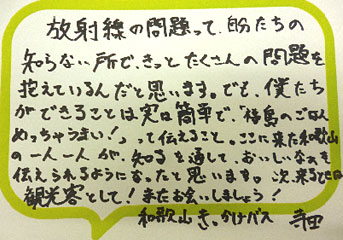 放射線の問題って、自分たちの
知らない所で、きっとたくさんの問題を
抱えているんだと思います。でも、僕たち
ができることは実は簡単で、「福島のごはん
めっちゃうまい!」って伝えること。ここに来た和歌山
の一人一人が、知るを通して、おいしいなぁを
伝えられるようになったと思います。次、来るときは
観光客として!またお会いしましょう!
和歌山きっかけバス 寺田